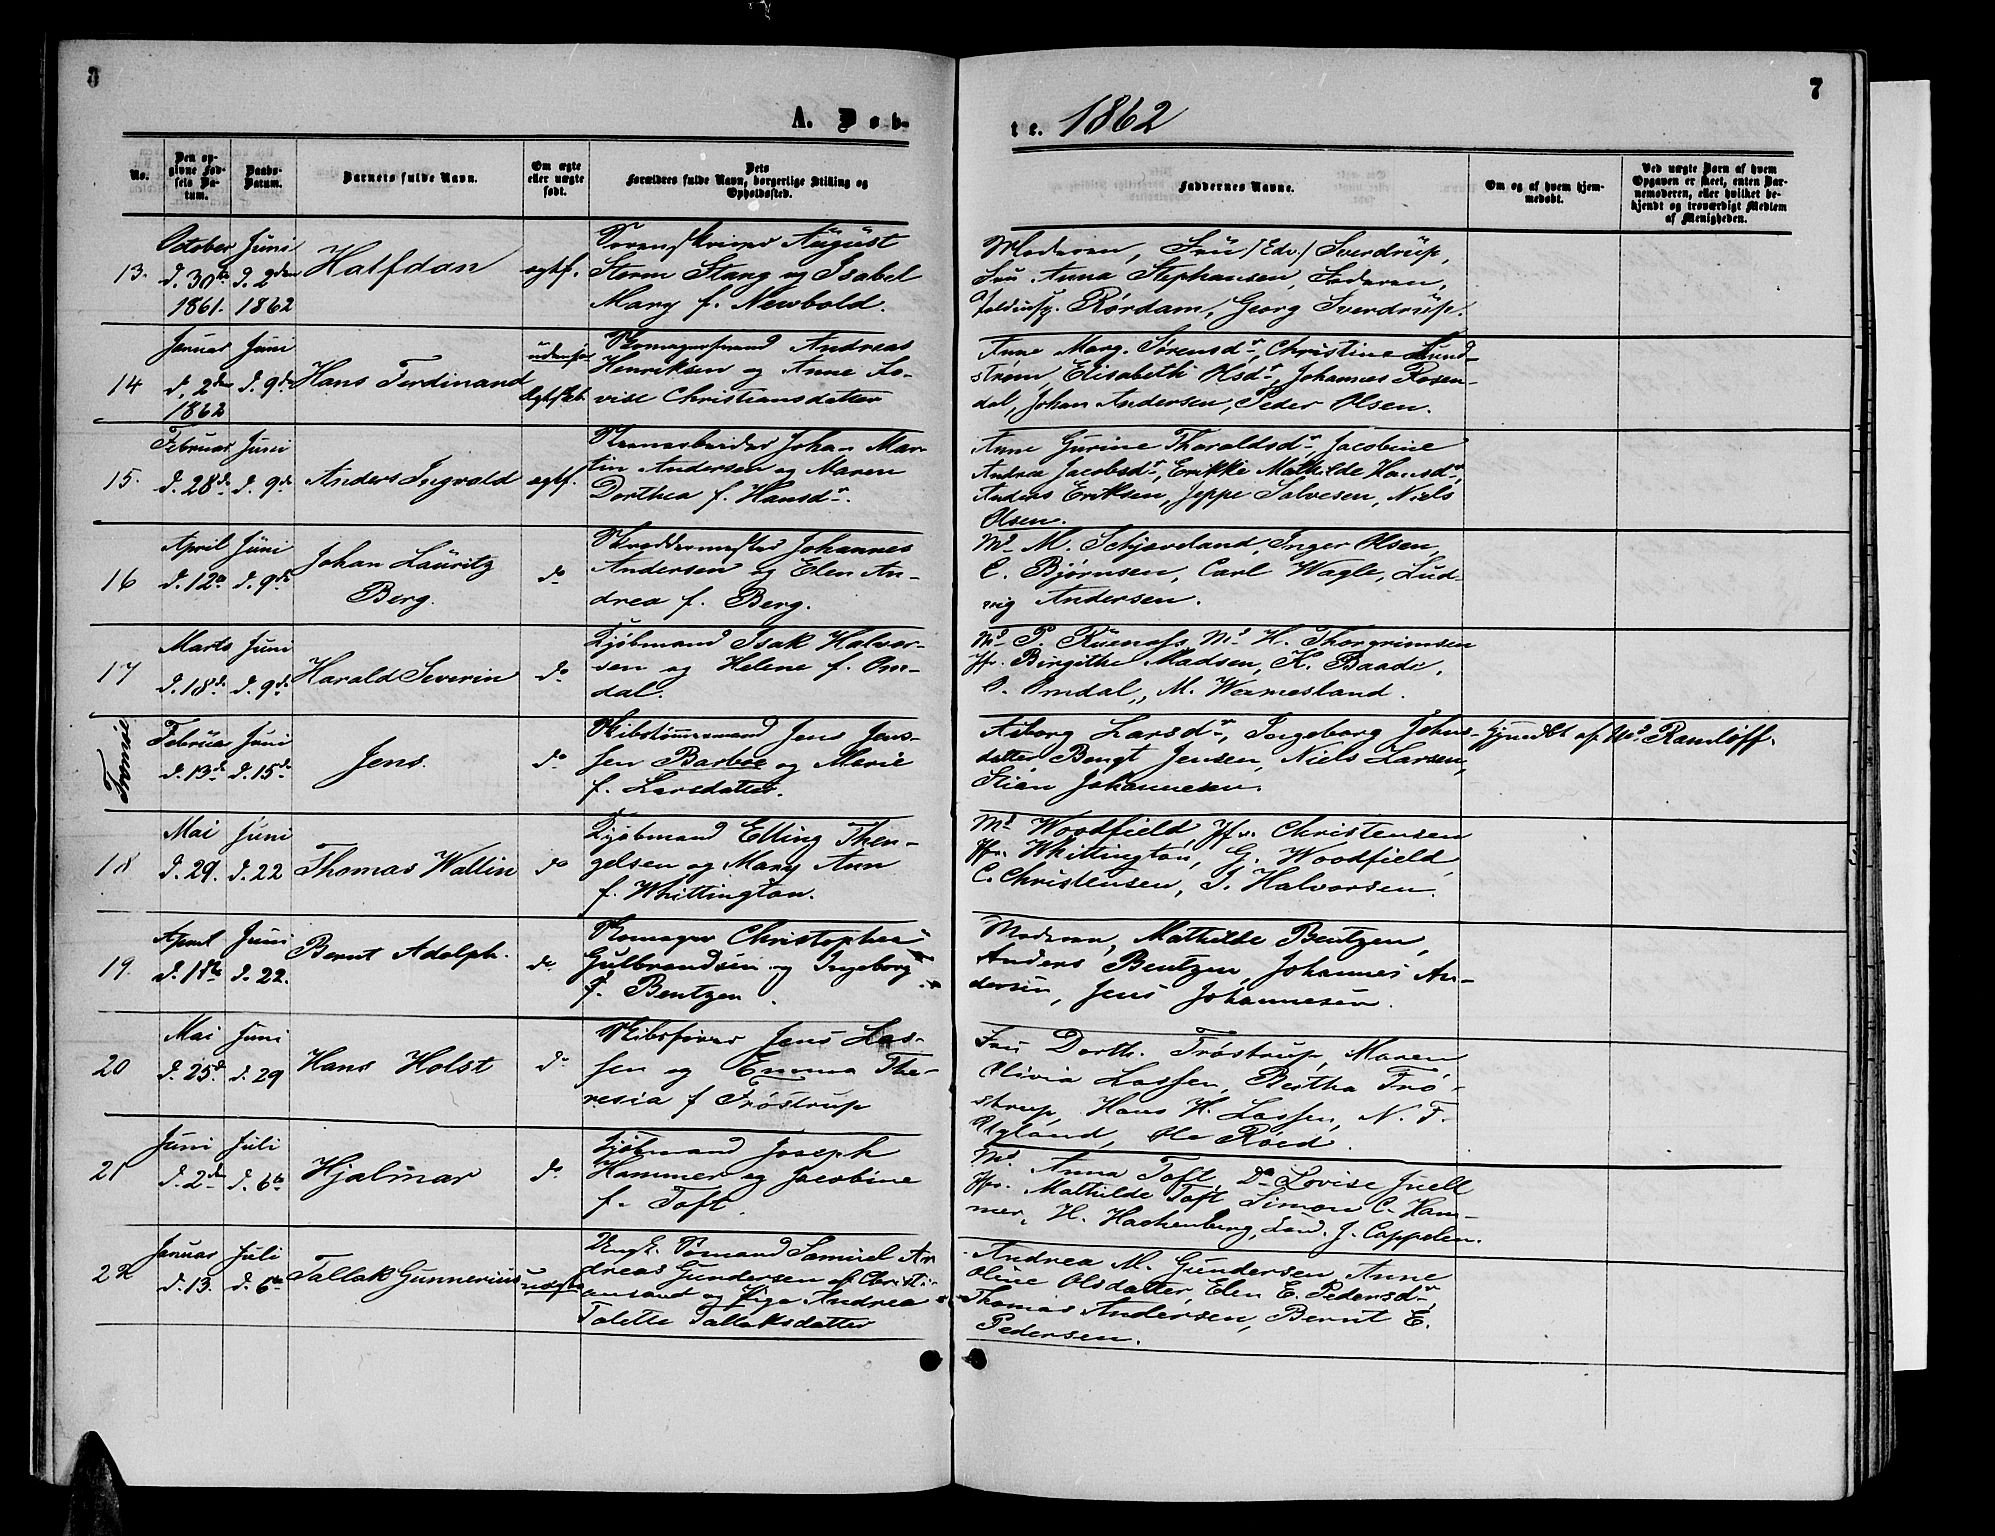 7
A. Døb-
te. 1862
No.
Den op-
givne Fød-
sels Da-
tum.
Daabs-
Datum.
Barnets fulde Navn.
Om ægte
eller uægte
født.
Dets
Forældres fulde Navn, borgerlige Stilling og
Opholdsted.
Faddernes Navne.
Om og af hvem hjem-
medøbt.
Ved uægte Børn af hvem
Opgaven er skeet, enten Bar-
nemoderen, eller hvilket be-
kjendt og troværdigt Medlem
af Menigheden.
13.
October
d. 30te
1861.
Juni
d. 2den
1862
Halfdan
ægtf.
Sorenskriver August
Storm Stang og Isabel
Mary f. Newbold.
Moderen, Fru (Edv.) Sverdrup,
Fru Anna Stephansen, Faderen,
Rørdam, Georg Sverdrup.
14
Januar
d. 2den
1862
Juni
d. 9de
Hans Ferdinand
udenfor
Ægtesk.
Andreas
Henriksen og Anne Lo-
vise Christiansdatter
Anne Marg. Sørensdr, Christine Lund-
strøm, Elisabeth Olsdr, Johannes Rosen-
dal, Johan Andersen, Peder Olsen.
15.
Februar
d. 28de
Juni
d. 9de
Anders Ingvald
ægtf.
Johan Mar-
tin Andersen og Maren
Dorthea f. Hansdr.
Anne Gurine Tharaldsdr, Jacobine
Andrea Jacobsdr, Erikke Mathilde Hansdr,
Anders Eriksen, Jeppe Salvesen, Niels
Olsen.
16
April
d. 12te
Juni
d. 9de
Johan Lauritz
Berg.
do
Skreddermester Johannes
Andersen og Elen An-
drea f. Berg.
Md M. Schjøveland, Inger Olsen,
C. Bjørnsen, Carl Wagle, Lud-
vig Andersen.
17
Marts
d. 18de
Juni
d. 9de
Harald Severin
do
Kjøbmand Isak Halvor-
sen og Helene f. Om-
dal.
Md P. Ruenæs, Md H. Thorgrimsen
Jfr. Birgithe Madsen, K. Baade,
O. Omdal, M. Wermesland.
Tromøe
Februar
d. 13de
Juni
d. 15de
Jens.
do
Skibstømmermand Jens Jens-
sen Barboe og Marie
f. Larsdatter.
Aaborg Larsdr, Ingeborg Johns-
datter Bengt Jensen, Niels Larsen,
Stian Johannesen.
hjmdbt af Md Ramløff.
18
Mai
d. 29.
Juni
d. 22
Thomas Wallin
do
Kjøbmand Elling Then-
gelsen og Mary Ann
f. Whittington.
Md Woodfield, Jfr. Christensen
Jfr. Whittington, G. Woodfield,
C. Christensen, I. Halvorsen.
19.
April
d. 18de
Juni
d. 22.
Bernt Adolph.
do
Christopher
Gulbrandsen og Ingeborg
f. Bentzen.
Moderen, Mathilde Bentzen,
Anders Bentzen, Johannes An-
dersen, Jens Johannesen.
20
Mai
d. 25de
Juni
d. 29
Hans Holst
do
Skibsfører Jens Las-
sen og Emma The-
resia f Trøstrup
Fru Dorth. Trøstrup, Maren
Olivia Lassen, Bertha Trø-
strup, Hans H. Lassen, N. F.
Ugland, Ole Røed.
21
Juni
d. 2den
Juli
d. 6te
Hjalmar
do
Kjøbmand Joseph
Hammer og Jacobine
f. Toft.
Md Anna Toft, Do Lovise Juell
Jfr. Mathilde Toft Simon C. Ham-
mer, H. Hachenberg, Cand. J. Cappelen.
22
Januar
d. 13.
Juli
d. 6te
Tallak Gunnerius
uægte
Ungk. Sømand Samuel An
dreas Gundersen af Christi-
ansand og Pige Andrea
Talette Tallaksdatter
Andrea M. Gundersen, Anne
Oline Olsdatter, Elen E. Pedersdr,
Thomas Andersen, Bernt E.
Pedersen.